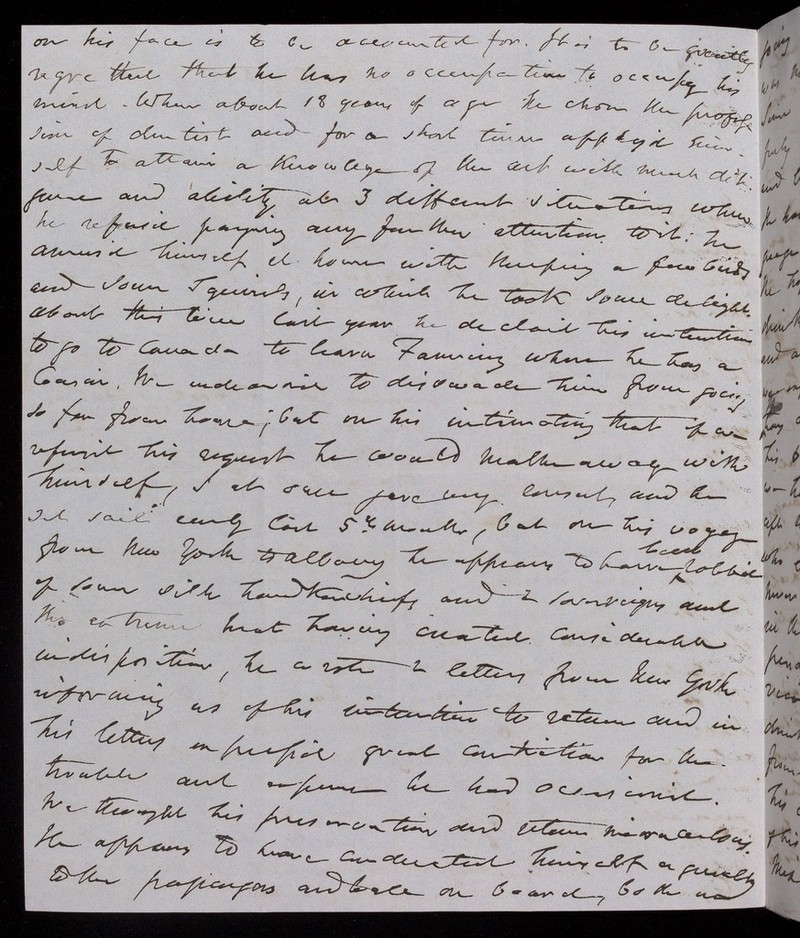 on his face is to be accounted for. It is to be greatly
regretted that he has no occupation to occupy his
mind. When about 18 years of age he chose the profes
sion of dentist and for a short time applyed him
self to attain a knowledge of the art with much dili
gence and ability at 3 different situations when
he refused paying any further attention to it: he
amused himself at home with keeping a few birds
and some squirrels, in which he took some delight.
about this time last year he declared his intention
to go to Canada to learn Farming where he has a
Cousin. We endeavored to disswade him from going
so far from home; but on his intimating that if we
refused his request he would make away with
himself, I at once gave my consent, and he
set sail early last 5th month, but on his voyage
from New York to Albany he appears to have been robbed
of some silk handkerchiefs and 2 sovereigns and
the extreme heat having created considerable
indisposition, he wrote 2 letters from New York
informing us of his intention to return and in
his letters expressed great contrition for the
trouble and expense he had occasioned.
We thought his preservation and return miraculous.
He appears to have conducted himself
to the passengers and on board, both